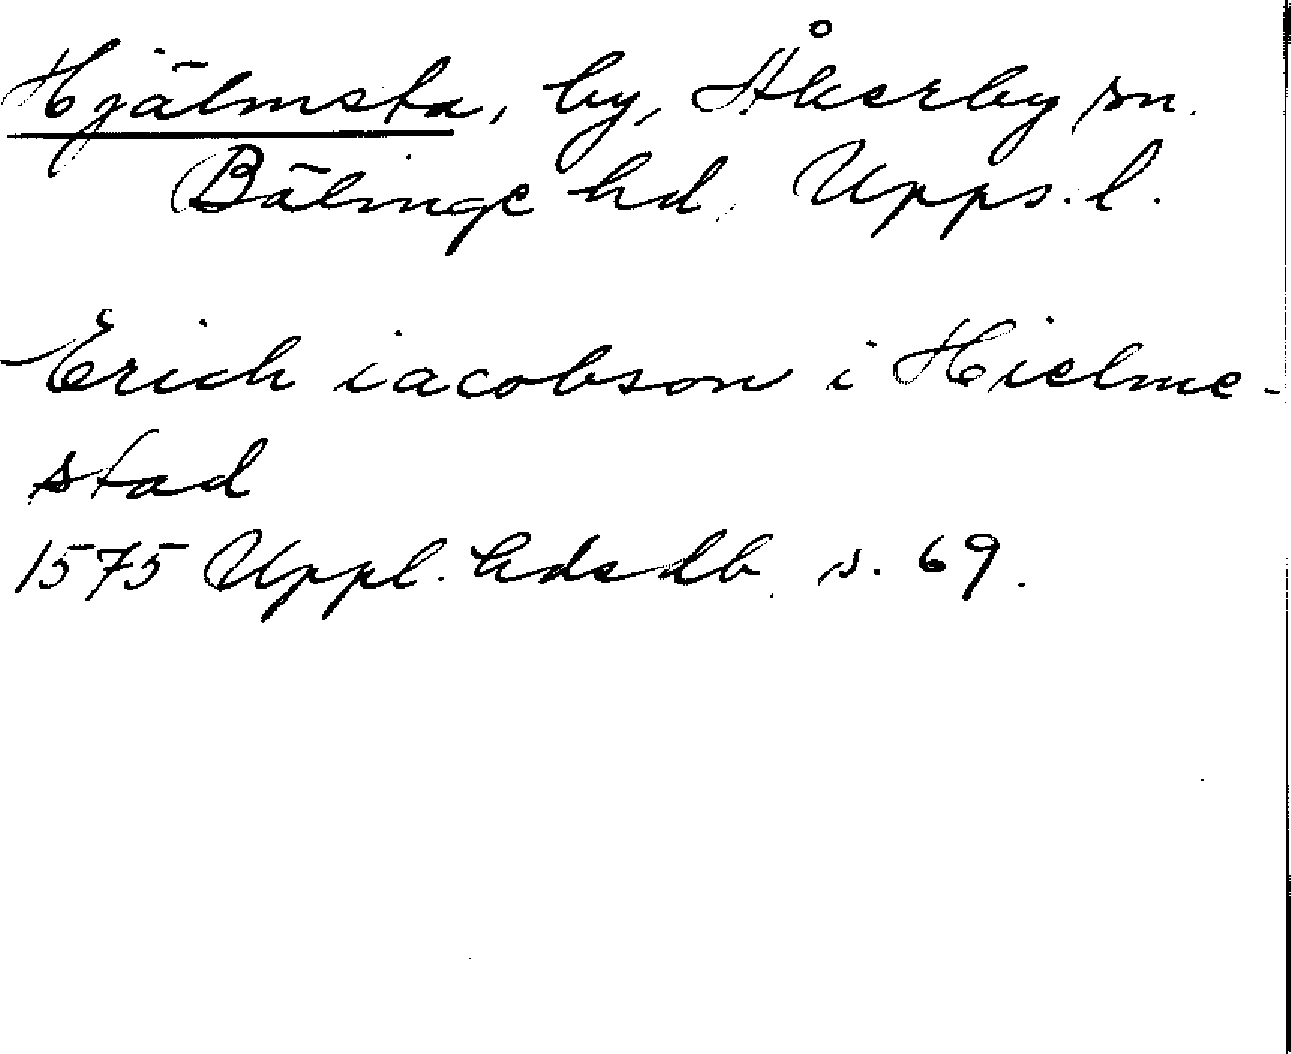 Hjälmsta, by, Åkerby sn.
Bälinge hd, Upps. l.
Erich iacobson i Hielme-
stad
1575 Uppl. hdsdb. s. 69.